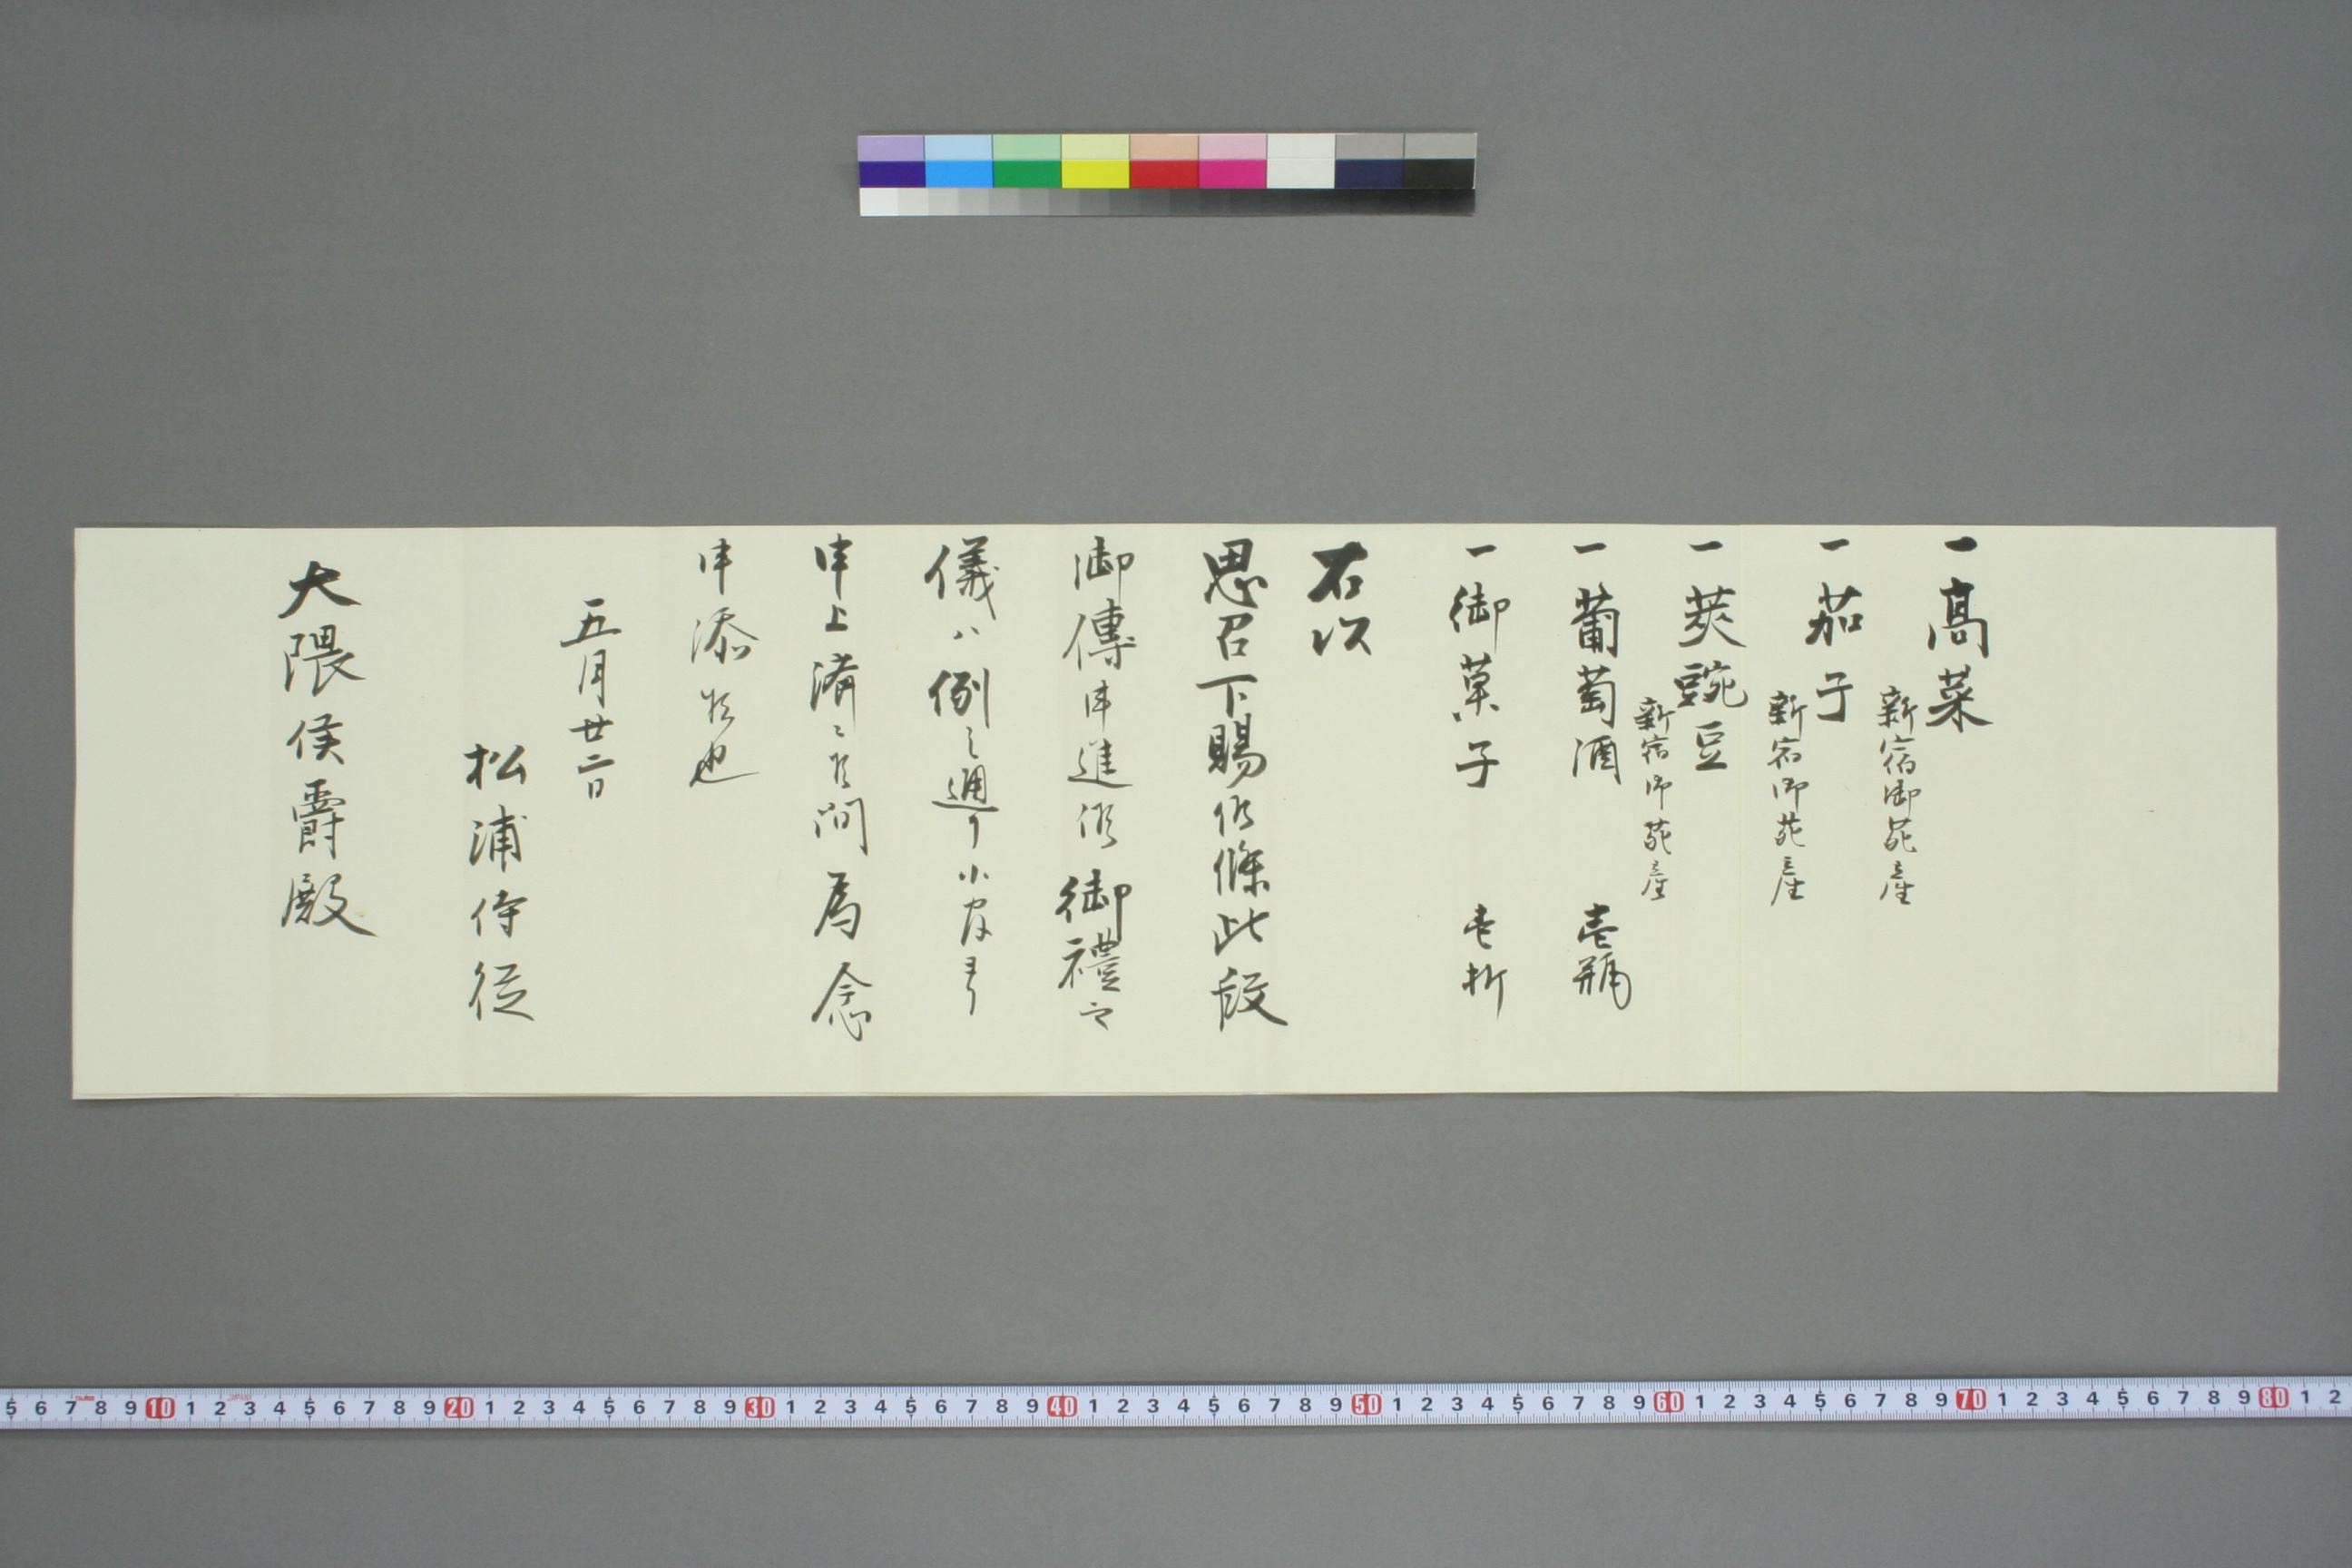 一高菜
新宿御苑産
一茄子
新宿御苑産
一莢豌豆
新宿御苑産
一葡萄酒 壱瓶
一御菓子 壱折
右以
思召下賜候條此段
御傳申進候御禮之
儀ハ例之通リ小官ヨリ
申上濟ニ候間為念
申添候也
五月廿二日
松浦侍従
大隈侯爵殿